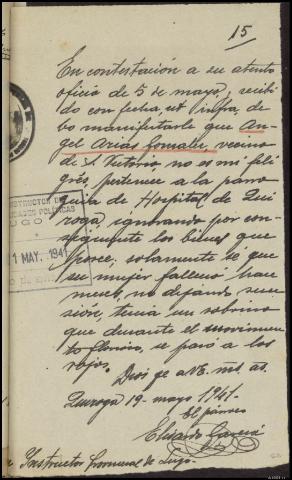 15
En contestación a su atento
oficio de 5 de mayo, recibi
do con fecha ut infra, de
bo manifestarle que An-
gel Arias González, vecino
de S. Victorio, no es mi feli
grés, pertenece a la parro
quia de Hospital de Qui
roga, ignorando por con-
siguiente los bienes que
posee; solamente sé que
su mujer falleció hace
meses, no dejando suce
sión, tenía un sobrino
que durante el movimien
to glorioso, se pasó a los
rojos.
Dios ge a VS. ms. as.
Quiroga 19-mayo 1941-
El párroco
Eduardo García
Instructor provincial de Lugo.
INSTRUCTOR
POLITICAS
LUGO
1 MAY. 1941